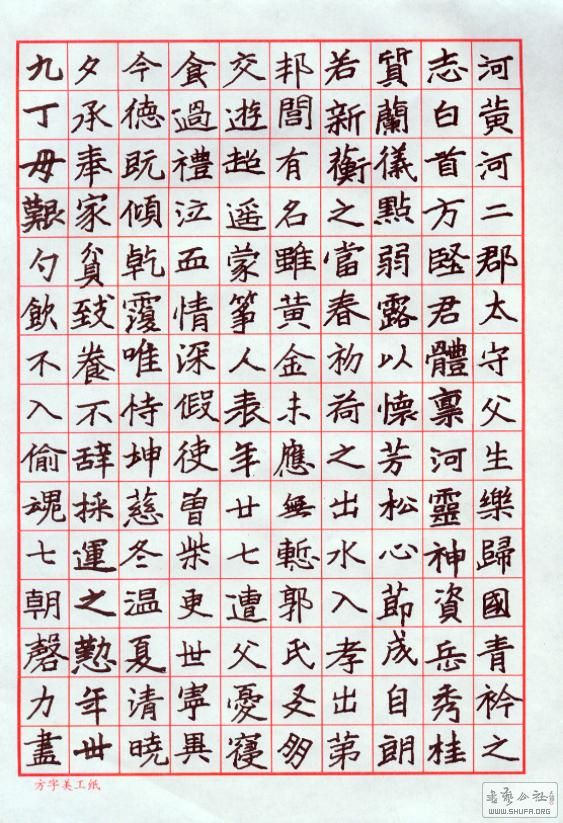 河黃河二郡太守父生樂歸國青衿之
志白首方堅君體稟河靈神資岳秀桂
質蘭儀點弱露以懷芳松心節成自朗
若新蘅之當春初荷之出水入孝出第
邦閭有名雖黃金未應無慙郭氏友朋
交遊超遥蒙筝人表年廿七遭父憂寢
食過禮泣血情深假使曾柴更世寧異
今德既傾乾覆唯恃坤慈冬温夏清曉
夕承奉家貧致養不辭採運之懃年丗
九丁母艱勺飲不入偷魂七朝磬力盡
方字美工紙
書藝公社
WWW.SHUFA.ORG